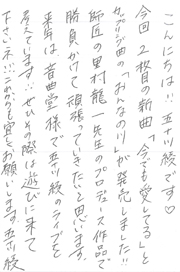 こんにちは!! 五十川綾です♡
今回2枚目の新曲「今でも愛してる」と
カップリング曲の「おんなの川」が発売しました!!
師匠の里村龍一先生のプロデュース作品で
勝負かけて頑張っていきたいと思います。
来年は音曲堂様で五十川綾のライブを
考えています!! ぜひその際は遊びに来て
下さいネ!! これからも宜しくお願いします。五十川綾